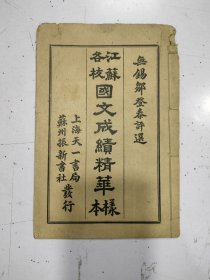 無錫鄒登泰評選
江蘇各校國文成績精華樣本
上海天一書局
蘇州振新書社
發行